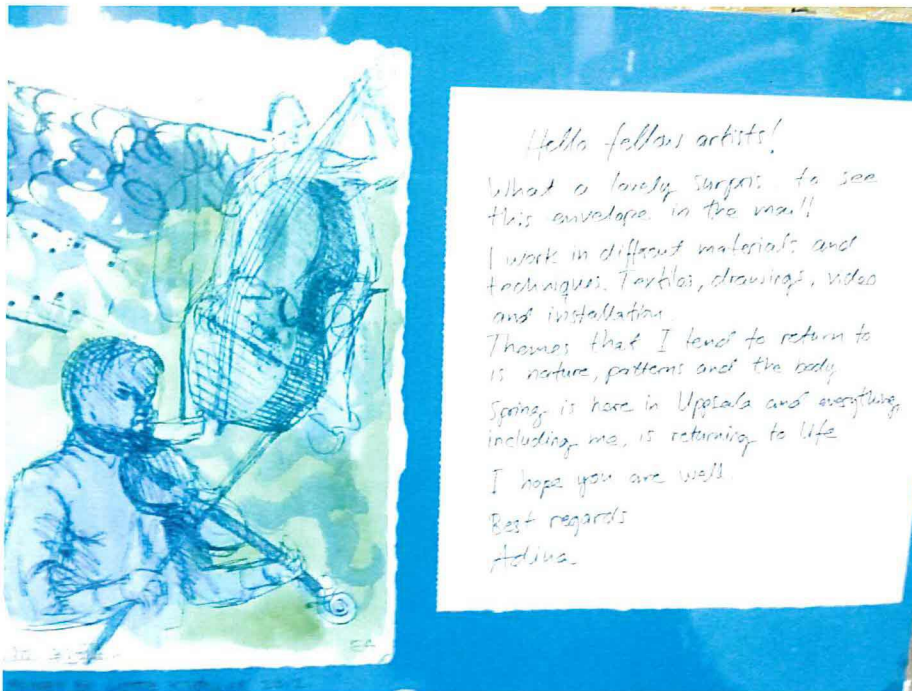 Hello fellow artists!
What a lovely surpris to see
this envelope in the mail!
I work in different materials and
techniques. Textiles, drawings, video
and installation.
Themes that I tend to return to
is nature, patterns and the body
Spring is here in Uppsala and everything,
including me, is returning to life
I hope you are well.
Best regards
Adina